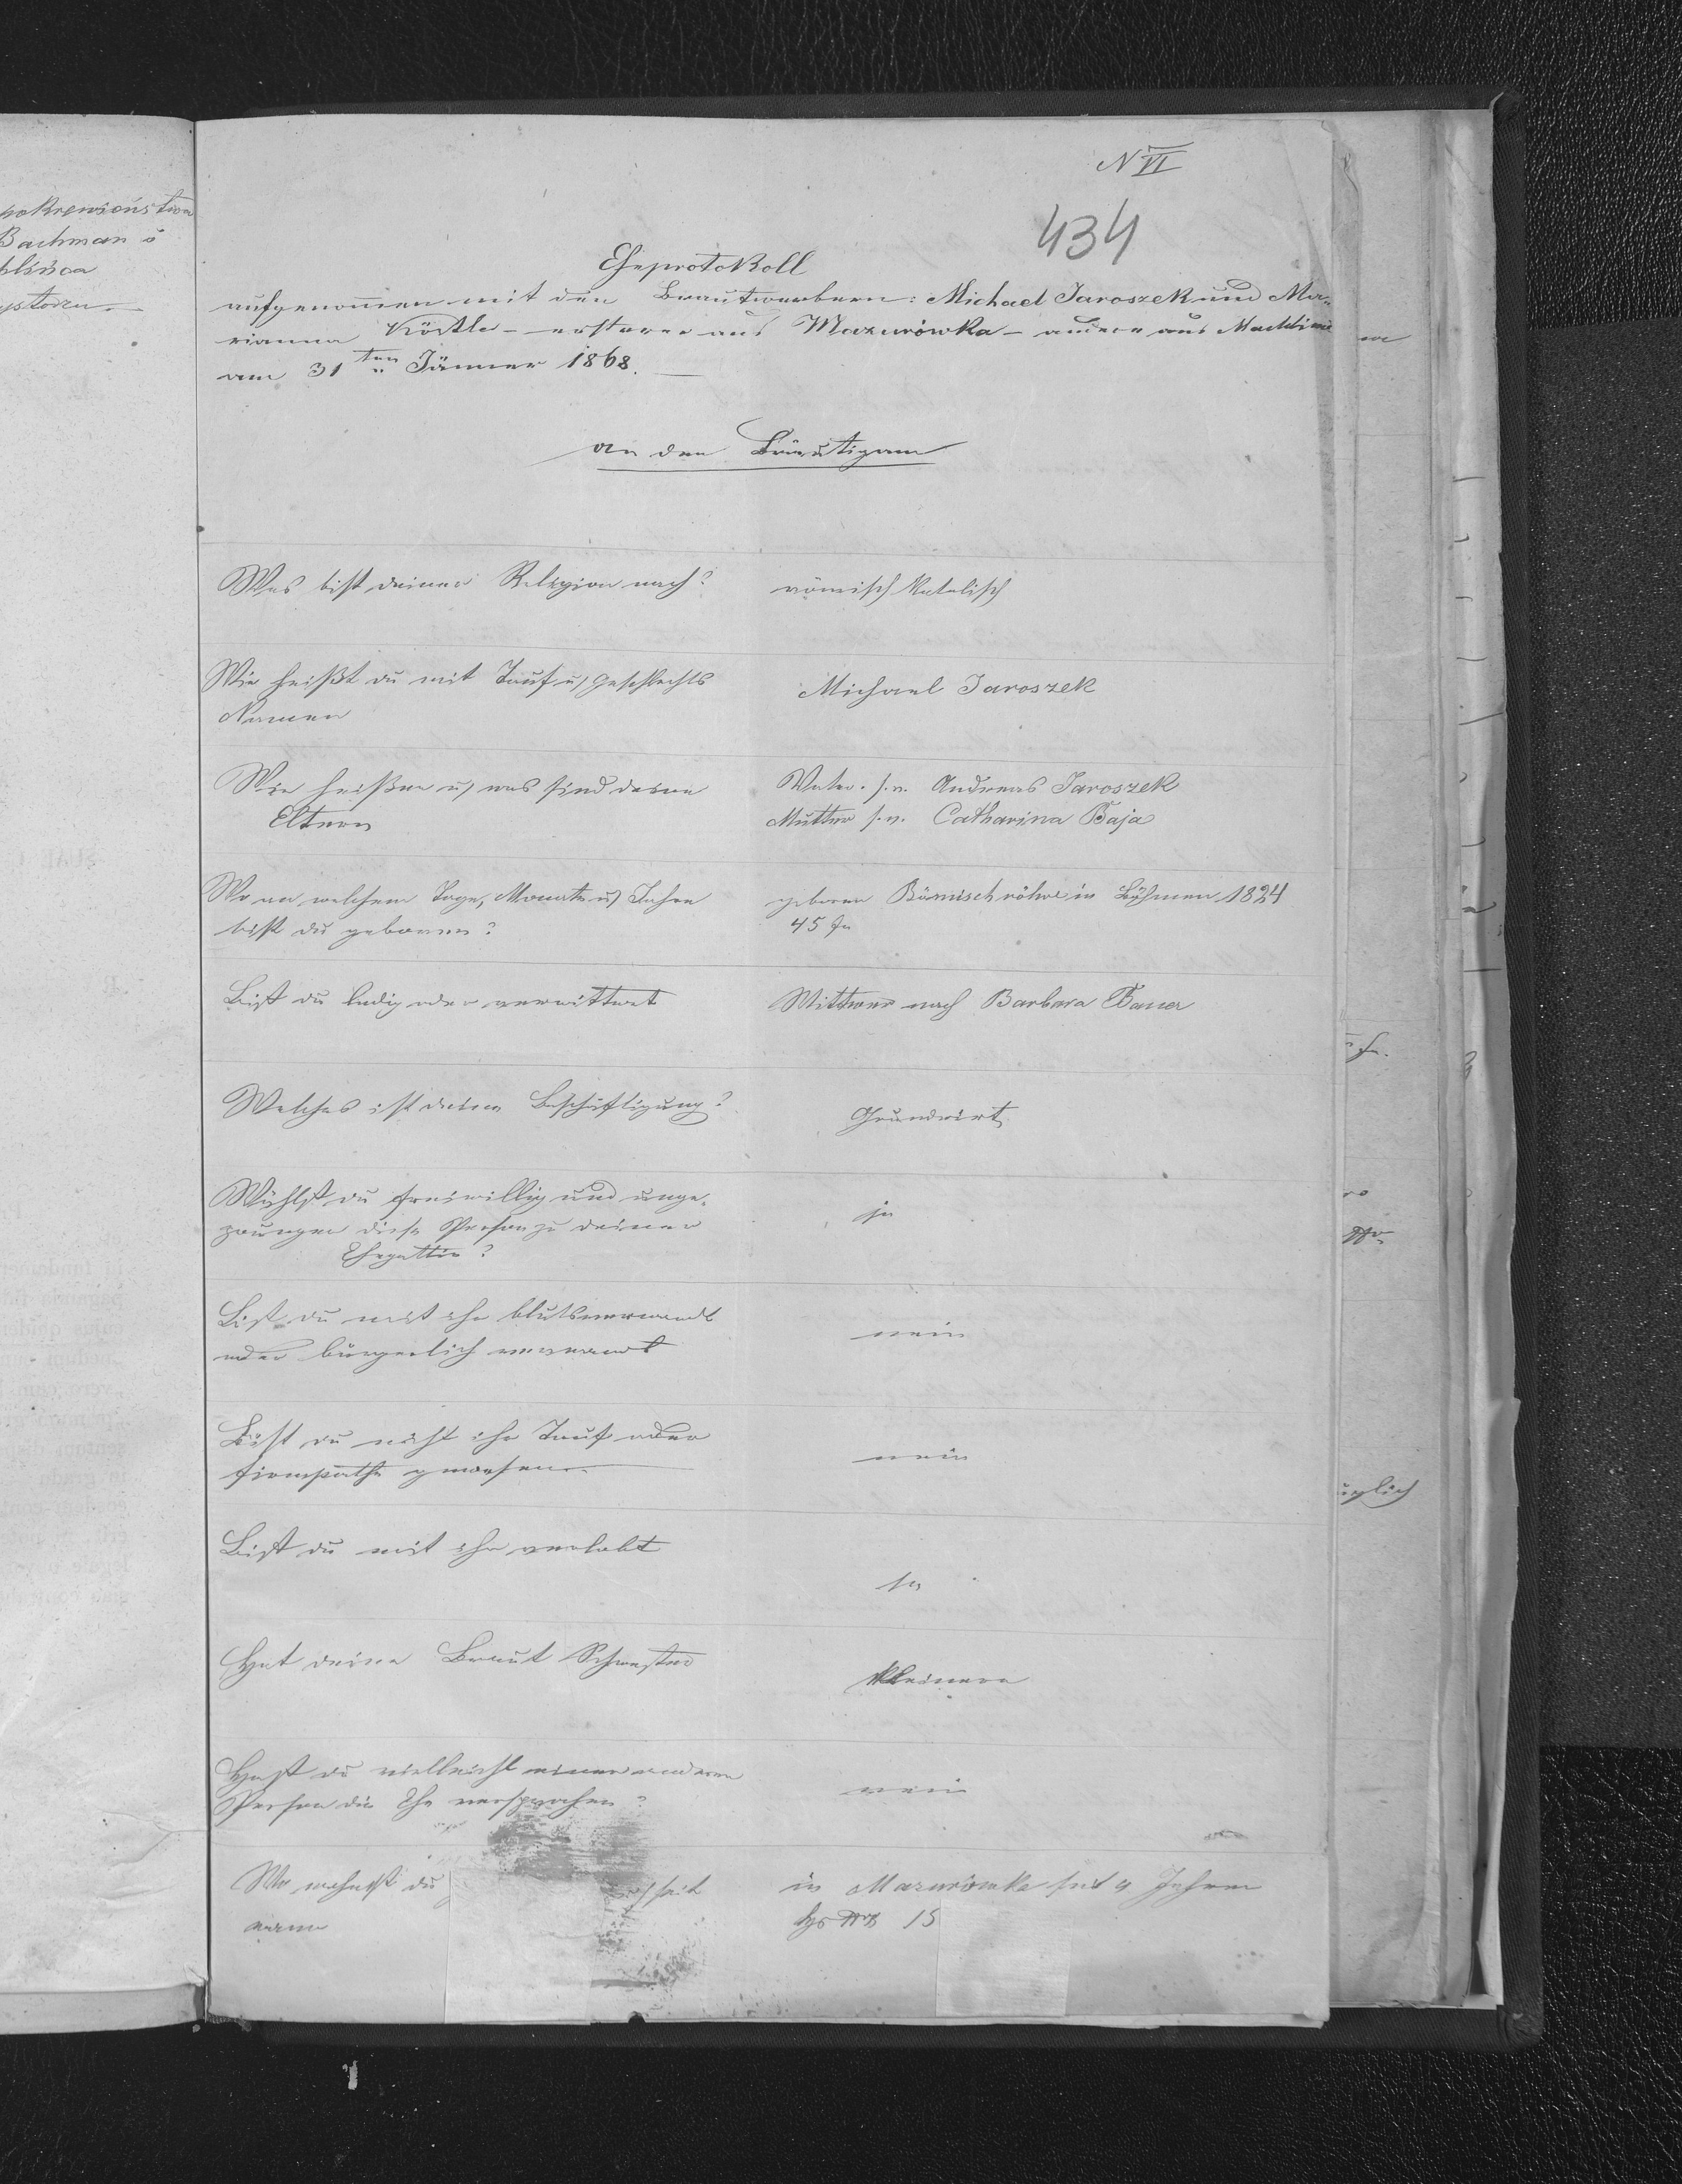 N VI
434
Eheprotokoll
aufgenommen mit den Brautwerbern: Michael Jaroszek und Ma-
rianna Köstle - ersterer aus Mazurówka - andere aus Machliniec
am 31ten Jänner 1868.
An den Bräutigam
Was bist deiner Religion nach?
römisch katolisch
Wie heißt du mit Tauf u Geschlechts
Namen
Michael Jaroszek
Wie heißen u was sind deine
Eltern
Vater
Andreas Jaroszek
Mutter
Catharina Baja
Wo an welchem Tage, Monate u Jahre
bist du geboren?
geboren Bömischröhre in Böhmen 1824
45 Ja
Bist du ledig oder verwittwet
Wittwer nach Barbara Bauer
Welches ist deine Beschäftigung?
Grundwirt
Wählst du freiwillig und unge-
zwungen diese Person zu deiner
Ehegattin?
ja
Bist du mit ihr blutsverwandt
oder bürgerlich verwandt
nein
Bist du nicht ihr Tauf oder
Firmpathe gewesen
nein
Bist du mit ihr verlobt
ja
Hat deine Braut Schwester
kleinere
Hast du vielleicht einer anderen
Person die Ehe versprochen?
nein
Wo wohnst du
seit
wann
in Mazurówka seit 4 Jahren
15
pokrewieństwa
Bachman